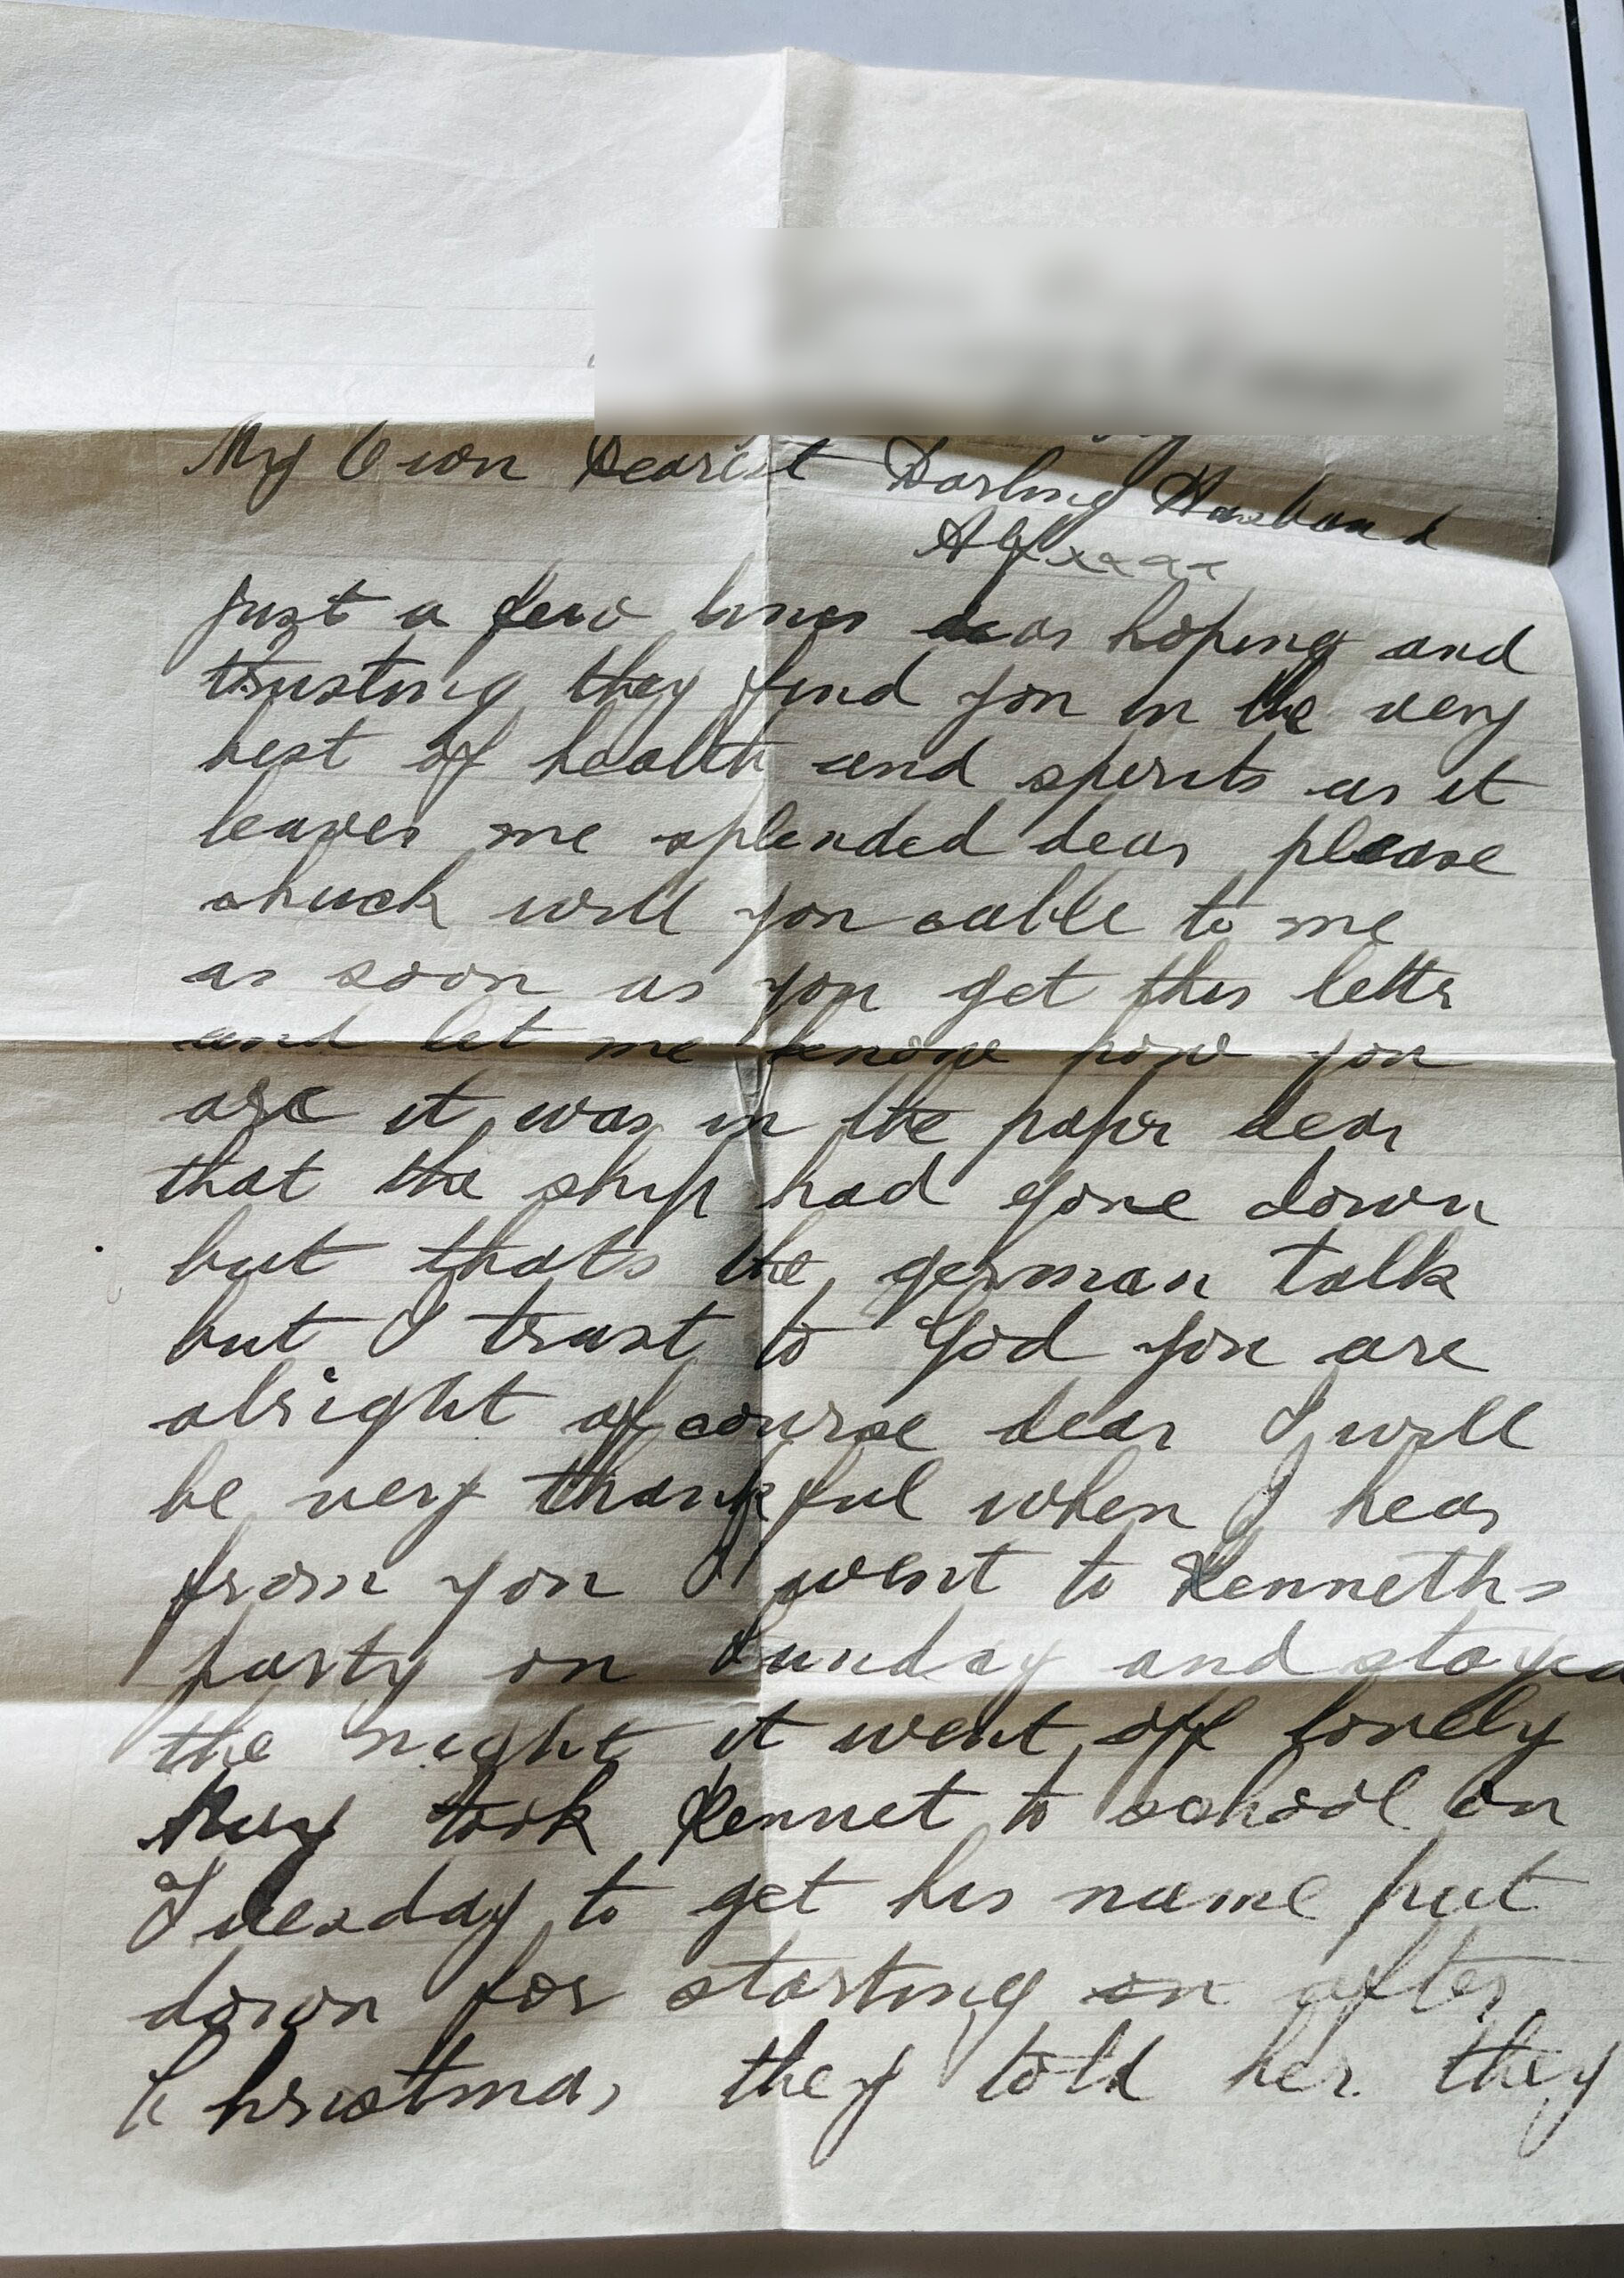 My Own Dearest Darling Husband
Alf xxxxx
just a few lines dear hoping and
trusting they find you in the very
best of health and spirits as it
leaves me splended dear please
chuck will you cable to me
as soon as you get this letter
and let me know how you
are it was in the paper dear
that the ship had gone down
but thats the german talk
but I trust to God you are
alright of course dear I will
be very thankful when I hear
from you I went to Kenneths
party on Sunday and stayed
the night it went off lovely
took Kennet to school on
Tuesday to get his name put
down for starting on after
Christmas they told her they